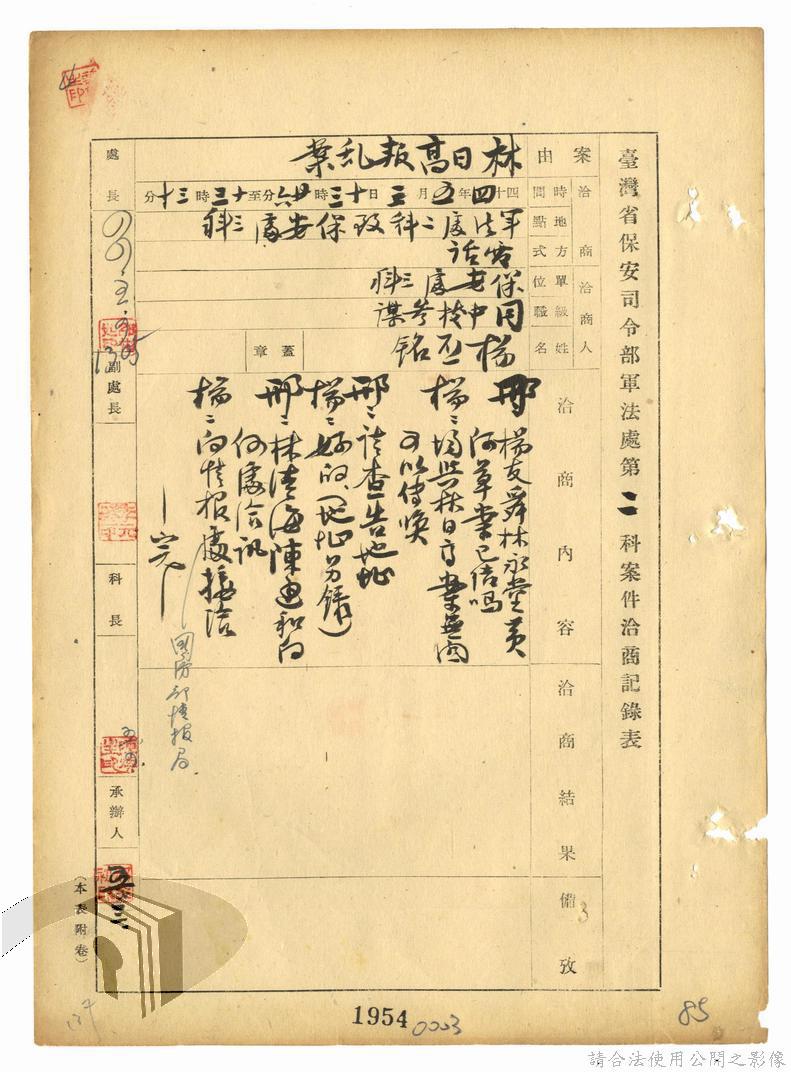 臺灣省保安司令部軍法處第二科案件洽商記錄表
案由
林日高叛乱案
洽商
時間
四十四年五月三日十三時廿六分至十三時三十分
地點
軍法處二科致保安處三科
方式
電話
洽商人
單位
保安處三科
級職
中校參謀
姓名
楊丕銘
蓋章
洽商內容
邢 楊友舜林永堂黃
阿草案已結嗎
楊：場與林日高案無關
可以傳喚
邢：請查告地址
楊：好的、（地址另鈔）
邢：林清海陳通和向
何處洽訊
楊：向情報處接洽
—完—
國防部情報局
洽商結果
備攷
3
處長
副處長
科長
承辦人
（本表附卷）
1954
0003
85
137
請合法使用公開之影像